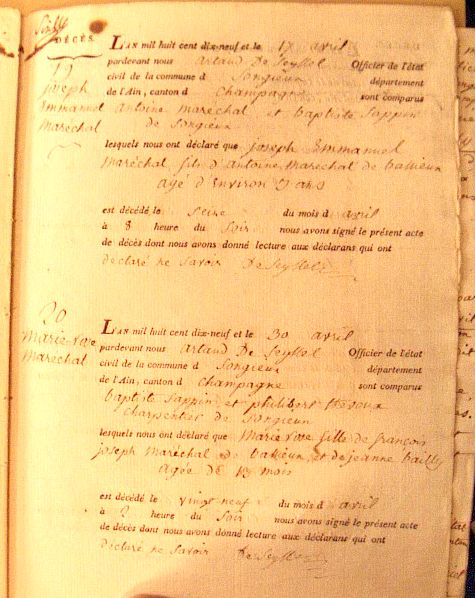 DÉCÈS.
19
joseph
Emmanuel
Maréchal
L'AN mil huit cent dix-neuf et le 17 avril
pardevant nous Artaud De Seyssel Officier de l'état
civil de la commune d Songieux département
de l'Ain, canton d Champagne sont comparus
Antoine maréchal et baptiste Sappin
de Songieux
lesquels nous ont déclaré que joseph Emmanuel
Maréchal fils d'Antoine Maréchal de
agé d'Environ ans
est décédé le Seize du mois d avril
à 8 heure du Soir nous avons signé le présent acte
de décès dont nous avons donné lecture aux déclarans qui ont
déclaré ne Savoir De Seyssel
20
Marie
Maréchal
L'AN mil huit cent dix-neuf et le 30 avril
pardevant nous Artaud De Seyssel Officier de l'état
civil de la commune d Songieux département
de l'Ain, canton d Champagne sont comparus
baptiste Sappin et philibert
charpentier de Songieux
lesquels nous ont déclaré que Marie fille de françois
joseph Maréchal de et de jeanne bailly
agée de 13 mois
est décédé le vingt neuf du mois d avril
à 2 heure du Soir nous avons signé le présent acte
de décès dont nous avons donné lecture aux déclarans qui ont
déclaré ne Savoir De Seyssel